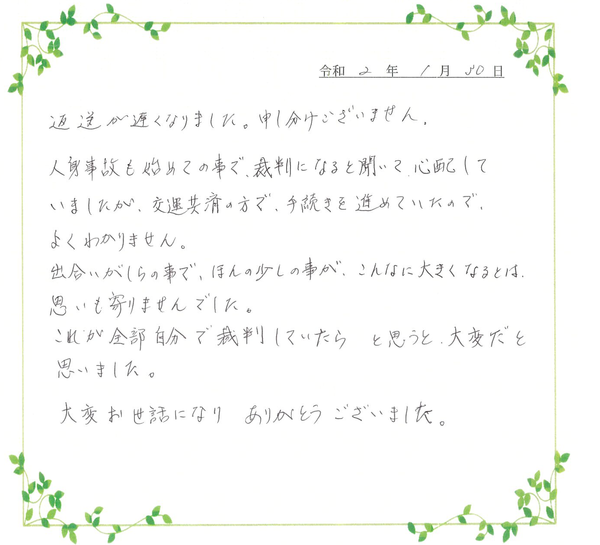 令和 2 年 1 月 30 日
返送が遅くなりました。申し分けございません。
人身事故も始めての事で、裁判になると聞いて、心配して
いましたが、交運共済の方で、手続きを進めていたので、
よくわかりません。
出合いがしらの事で、ほんの少しの事が、こんなに大きくなるとは、
思いも寄りませんでした。
これが全部自分で裁判していたら と思うと、大変だと
思いました。
大変お世話になり ありがとうございました。